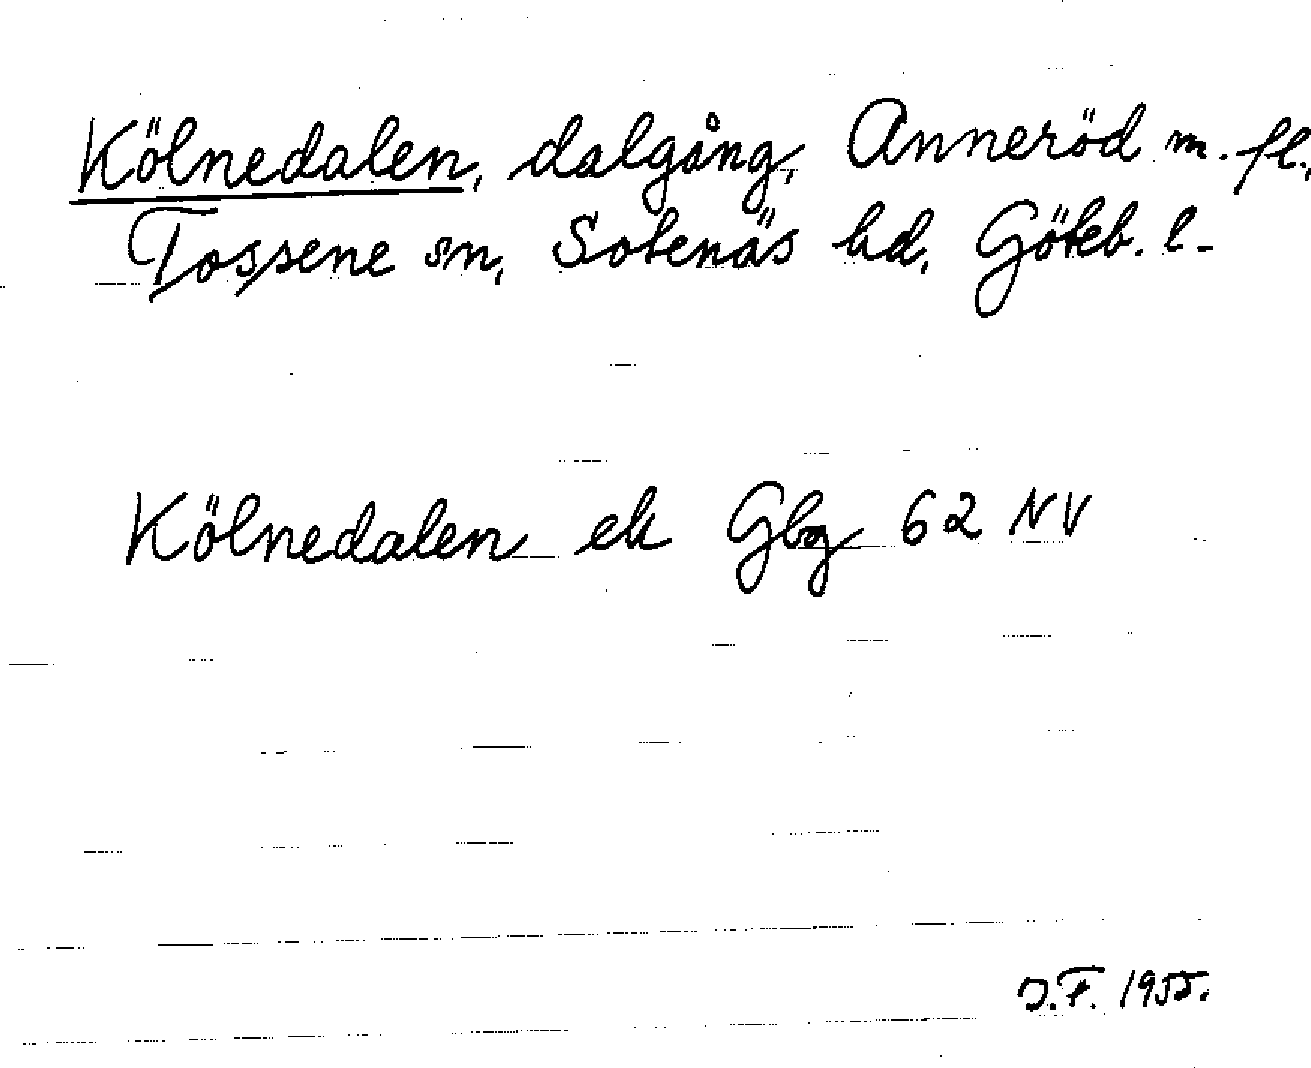 Kölnedalen, dalgång, Anneröd m. fl.,
Tossene sn, Sotenäs hd, Göteb. l.
Kölnedalen ek Gbg 62 NV
J.F. 1955.